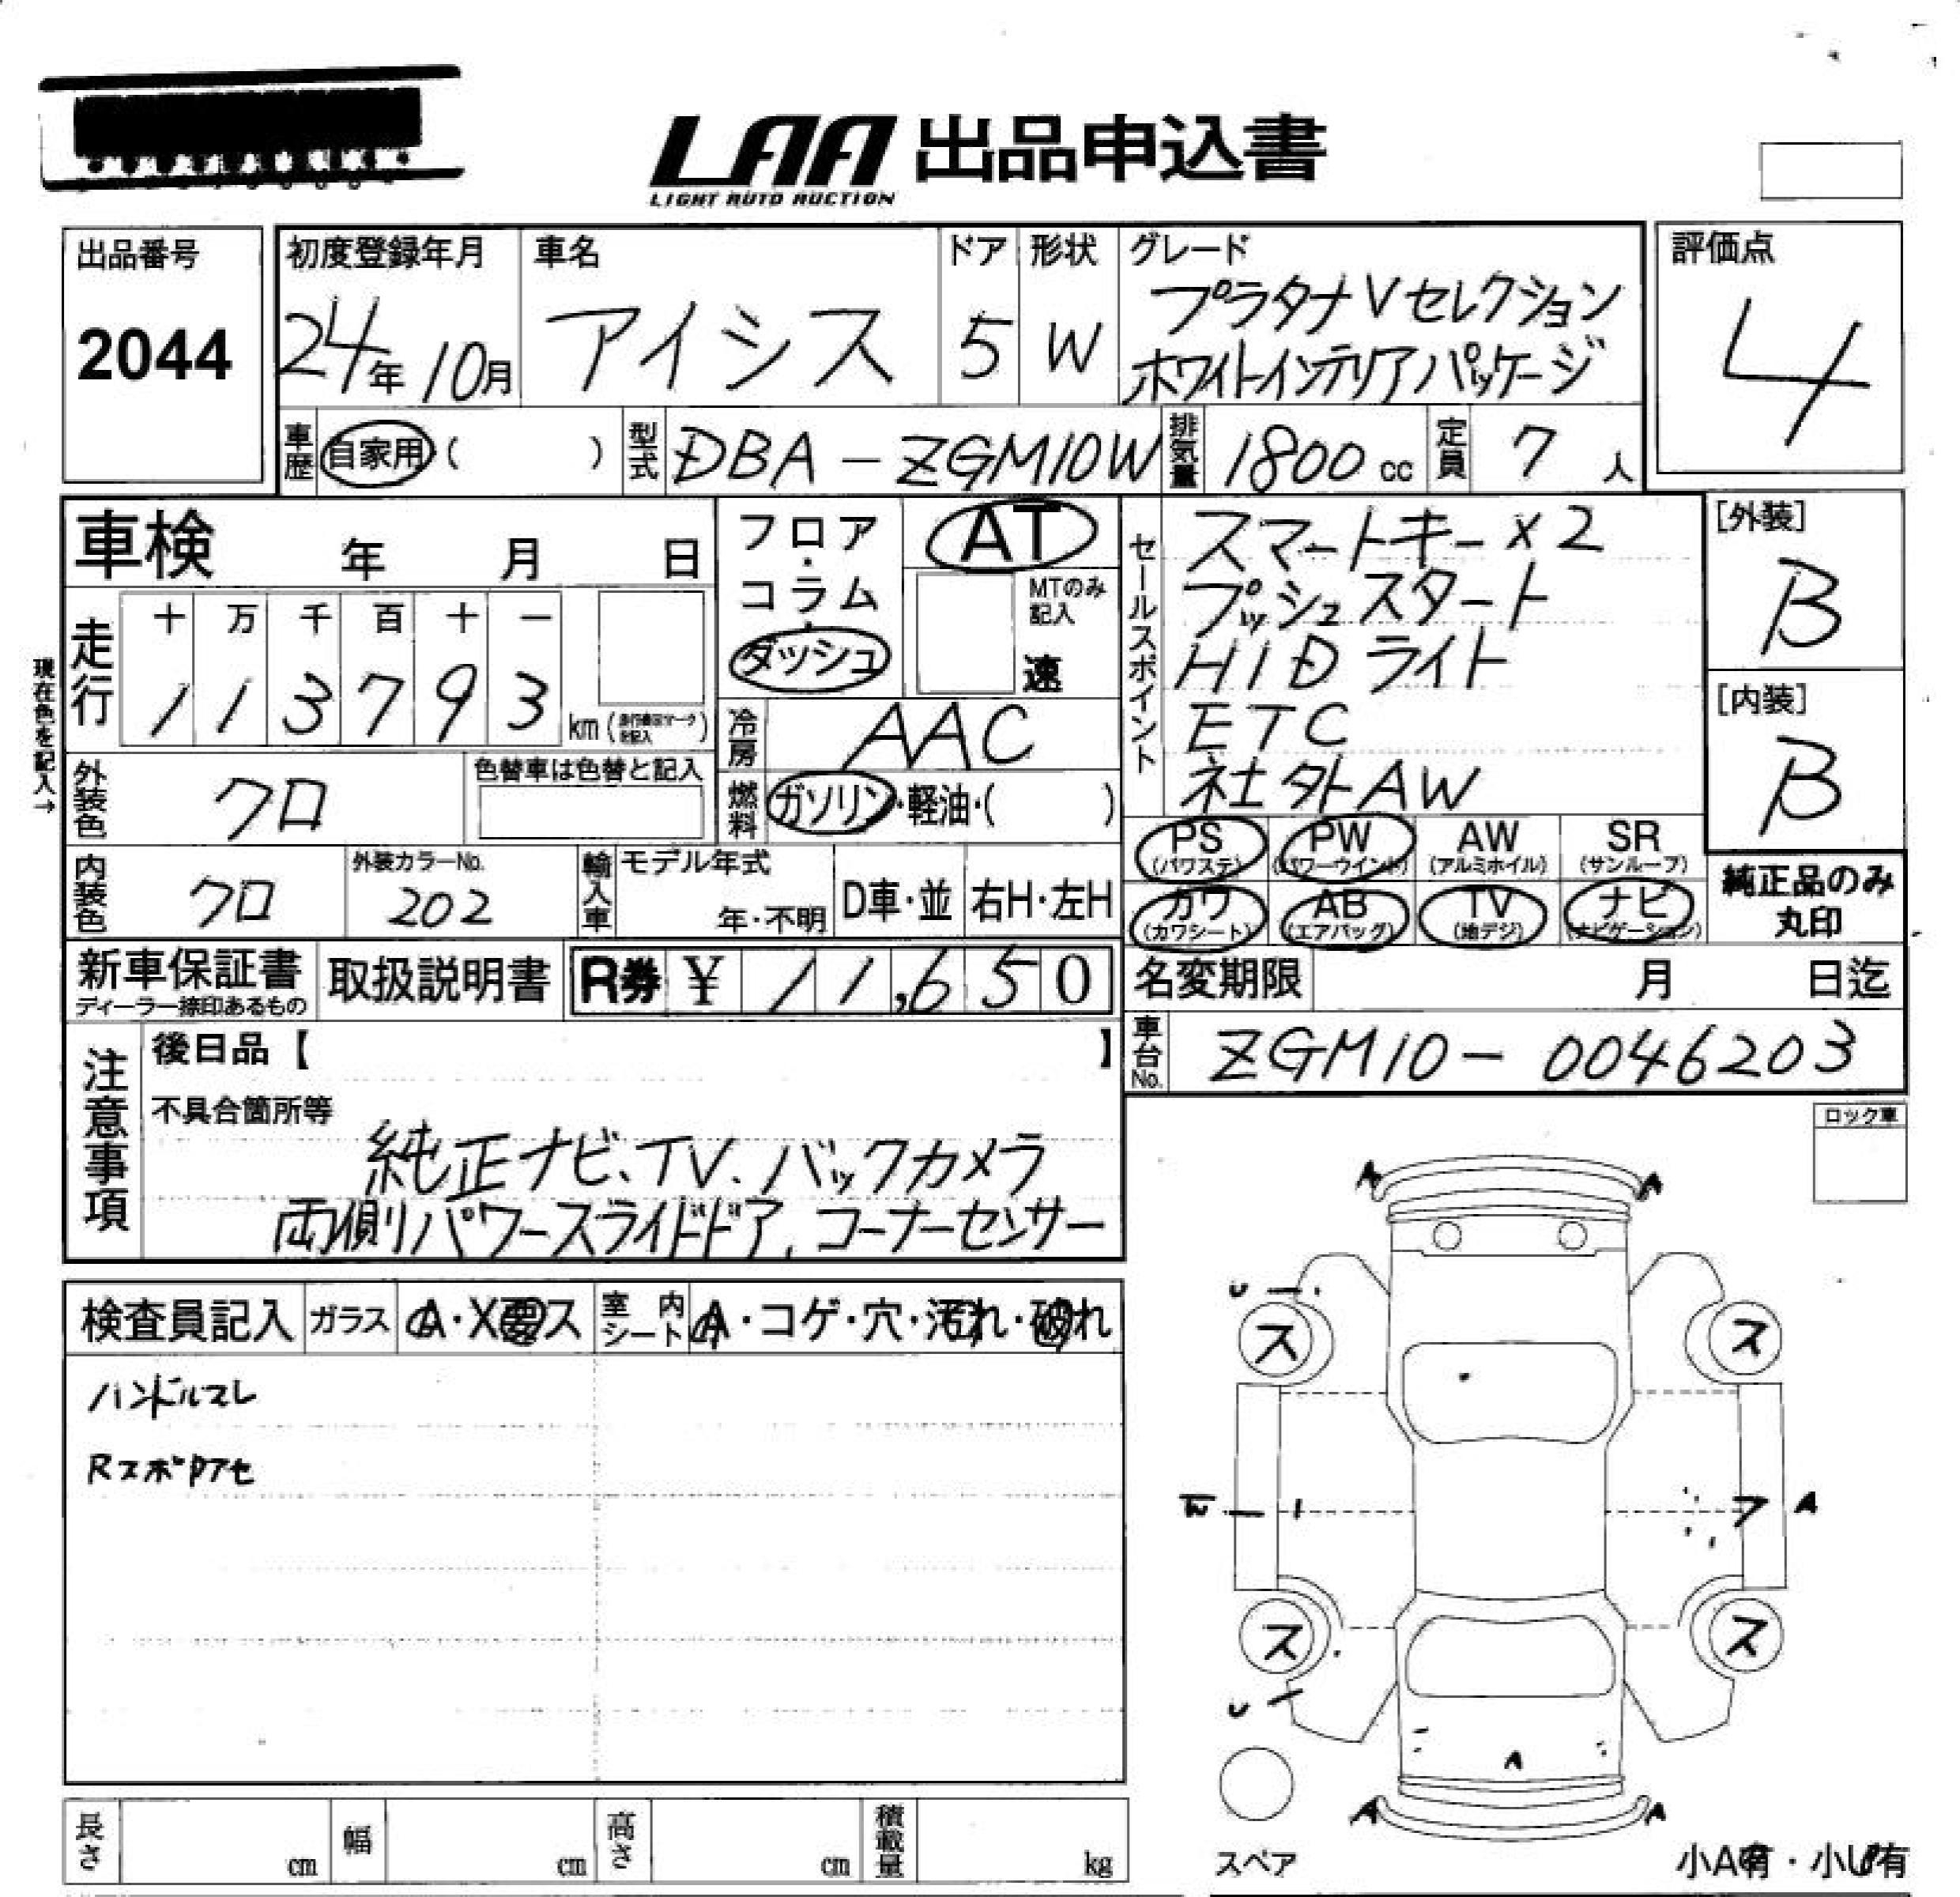 LAA 出品申込書
LIGHT AUTO AUCTION
出品番号
2044
初度登録年月
24年 10月
車名
アイシス
ドア
5
形状
W
グレード
プラタナVセレクション
ホワイトインテリアパッケージ
評価点
4
車歴 自家用 ( )
型式 DBA-ZGM10W
排気量 1800 cc
定員 7 人
車検 年 月 日
フロア・
コラム・
ダッシュ
AT
MTのみ
記入
速
現在色を記入→
走行
十 万 千 百 十 一
1 1 3 7 9 3
km
冷房 AAC
燃料 ガソリン・軽油・( )
外装色 クロ
色替車は色替と記入
内装色 クロ
外装カラーNo.
202
輸入車
モデル年式
年・不明
D車・並
右H・左H
セールスポイント
スマートキー×2
プッシュスタート
HIDライト
ETC
社外AW
[外装]
B
[内装]
B
PS
(パワステ)
PW
(パワーウインド)
AW
(アルミホイル)
SR
(サンルーフ)
カワ
(カワシート)
AB
(エアバッグ)
TV
(地デジ)
ナビ
(ナビゲーション)
純正品のみ
丸印
新車保証書
ディーラー捺印あるもの
取扱説明書
R券 ¥ 11,650
名変期限 月 日迄
車台No. ZGM10-0046203
注意事項
後日品【 】
不具合箇所等
純正ナビ、TV、バックカメラ
両側パワースライドドア、コーナーセンサー
ロック車
検査員記入
ガラス A・X要ス
室内シート A・コゲ・穴・汚れ・破れ
ハンドルスレ
RスポPアセ
A A
U
ス ス
A
ス ス
U
A
A A
スペア
小A有・小U有
長さ cm
幅 cm
高さ cm
積載量 kg